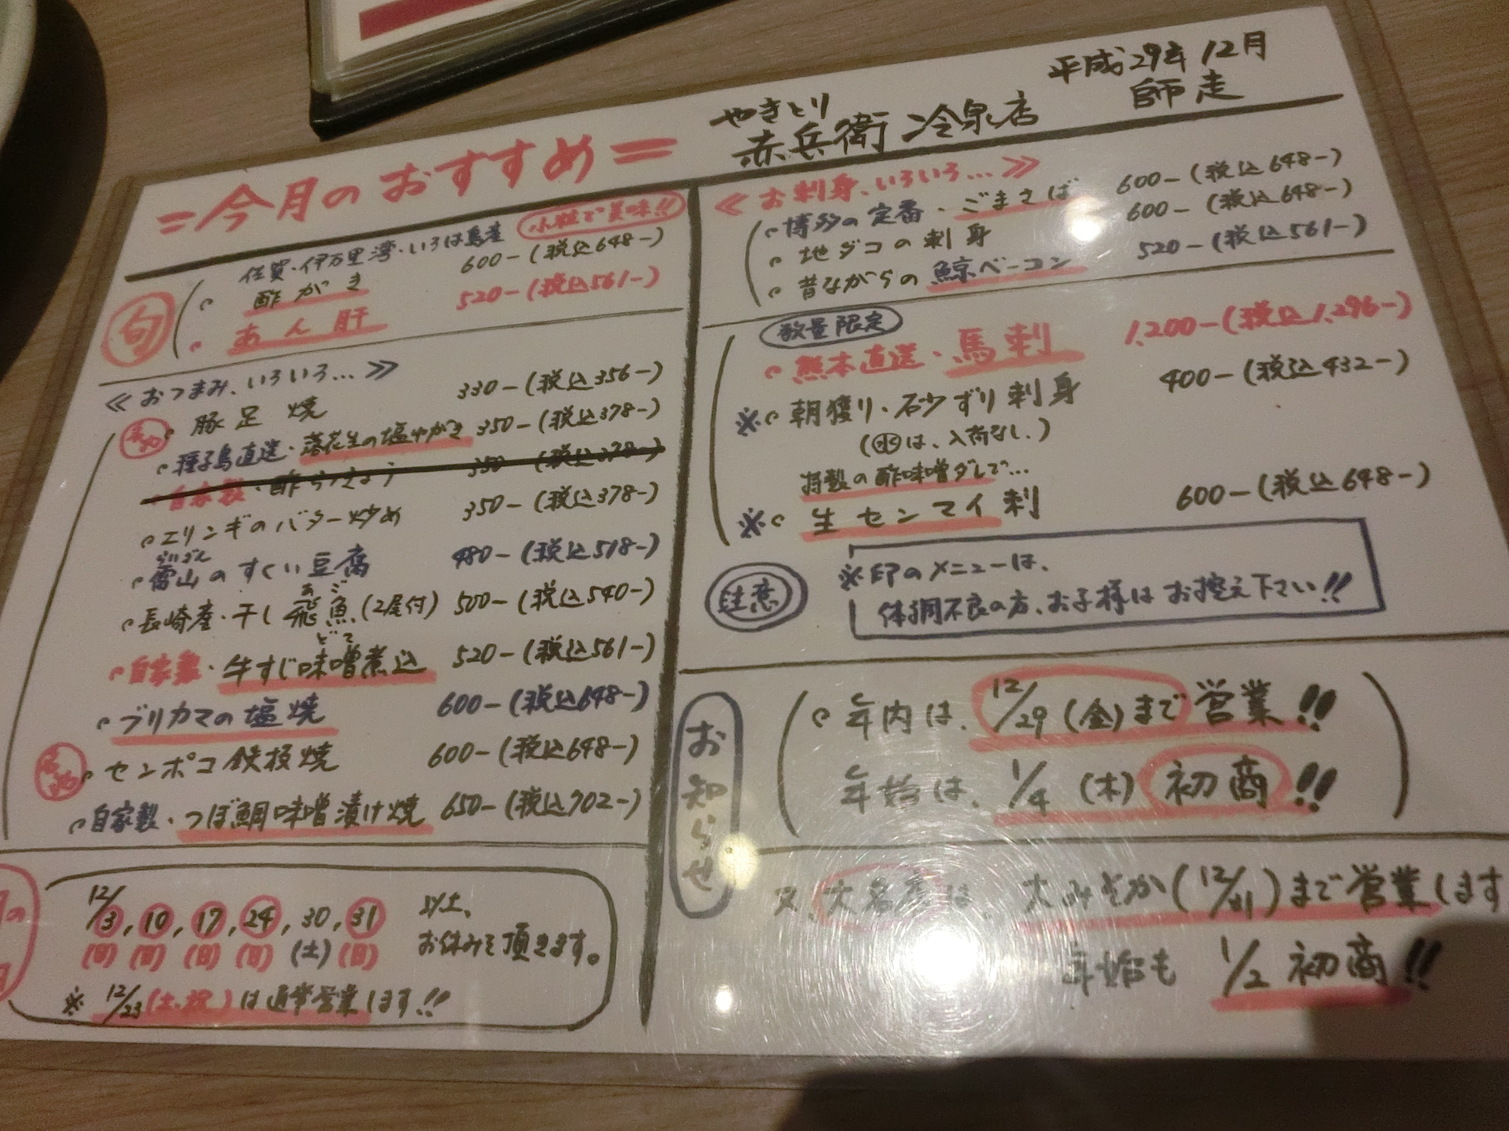 =今月のおすすめ=
やきとり
赤兵衛 冷泉店
平成29年12月
師走
小粒で美味!!
佐賀・伊万里湾・いろは島産
旬
酢がき 600-(税込648-)
あん肝 520-(税込561-)
≪おつまみ、いろいろ…≫
豚足焼 330-(税込356-)
種子島直送・落花生の塩ゆがき 350-(税込378-)
自家製・酢らっきょう 350-(税込378-)
エリンギのバター炒め 350-(税込378-)
らいざん
雷山のすくい豆腐 480-(税込518-)
あご
長崎産・干し飛魚(2尾付) 500-(税込540-)
どて
自家製・牛すじ味噌煮込 520-(税込561-)
ブリカマの塩焼 600-(税込648-)
センポコ鉄板焼 600-(税込648-)
自家製・つぼ鯛味噌漬け焼 650-(税込702-)
12/3, 10, 17, 24, 30, 31 以上、
(日) (日) (日) (日) (土) (日) お休みを頂きます。
※12/23(土・祝)は通常営業します!!
≪お刺身、いろいろ…≫
博多の定番・ごまさば 600-(税込648-)
地ダコの刺身 600-(税込648-)
昔ながらの鯨ベーコン 520-(税込561-)
数量限定
熊本直送・馬刺 1,200-(税込1,296-)
※朝獲り・砂ずり刺身 400-(税込432-)
(㊌は、入荷なし。)
特製の酢味噌ダレで…
※生センマイ刺 600-(税込648-)
注意
※印のメニューは、
体調不良の方、お子様はお控え下さい!!
お知らせ
年内は、12/29(金)まで営業!!
年始は、1/4(木)初商!!
又、大名店は、大みそか(12/31)まで営業します
年始も 1/2 初商!!